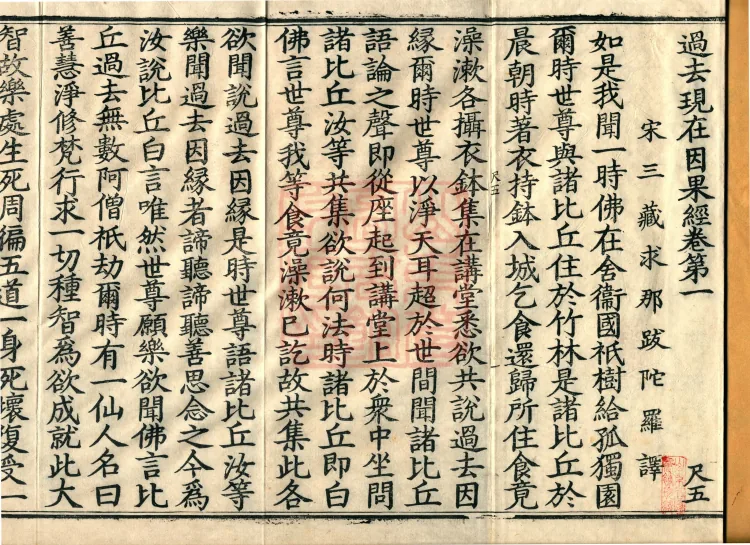 過去現在因果經卷第一
尺五
宋三藏求那跋陀羅譯
如是我聞一時佛在舍衞國祇樹給孤獨園
爾時世尊與諸比丘住於竹林是諸比丘於
晨朝時著衣持鉢入城乞食還歸所住食竟
尺五
澡漱各攝衣鉢集在講堂悉欲共說過去因
緣爾時世尊以淨天耳超於世間聞諸比丘
語論之聲即從座起到講堂上於衆中坐問
諸比丘汝等共集欲說何法時諸比丘即白
佛言世尊我等食竟澡漱已訖故共集此各
欲聞說過去因緣是時世尊語諸比丘汝等
樂聞過去因緣者諦聽諦聽善思念之今爲
汝說比丘白言唯然世尊願樂欲聞佛言比
丘過去無數阿僧祇劫爾時有一仙人名曰
善慧淨修梵行求一切種智爲欲成就此大
智故樂處生死周徧五道一身死壞復受一